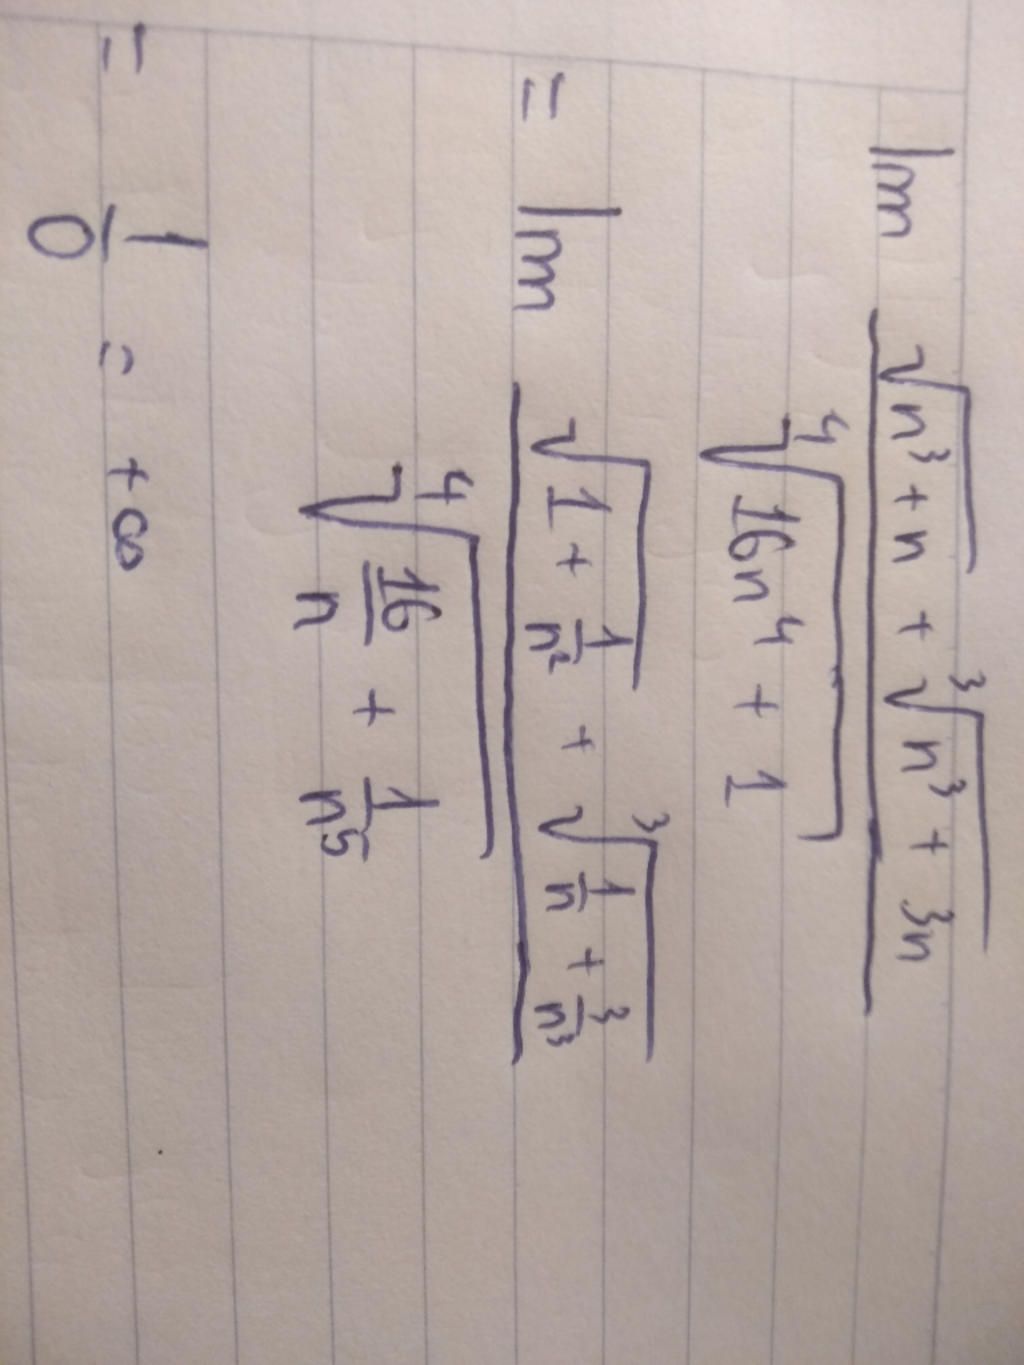 lim (√(n³ + n) + ³√(n³ + 3n)) / ⁴√(16n⁴ + 1)
= lim (√(1 + 1/n²) + ³√(1/n + 3/n³)) / ⁴√(16/n + 1/n⁵)
= 1/0 = +∞